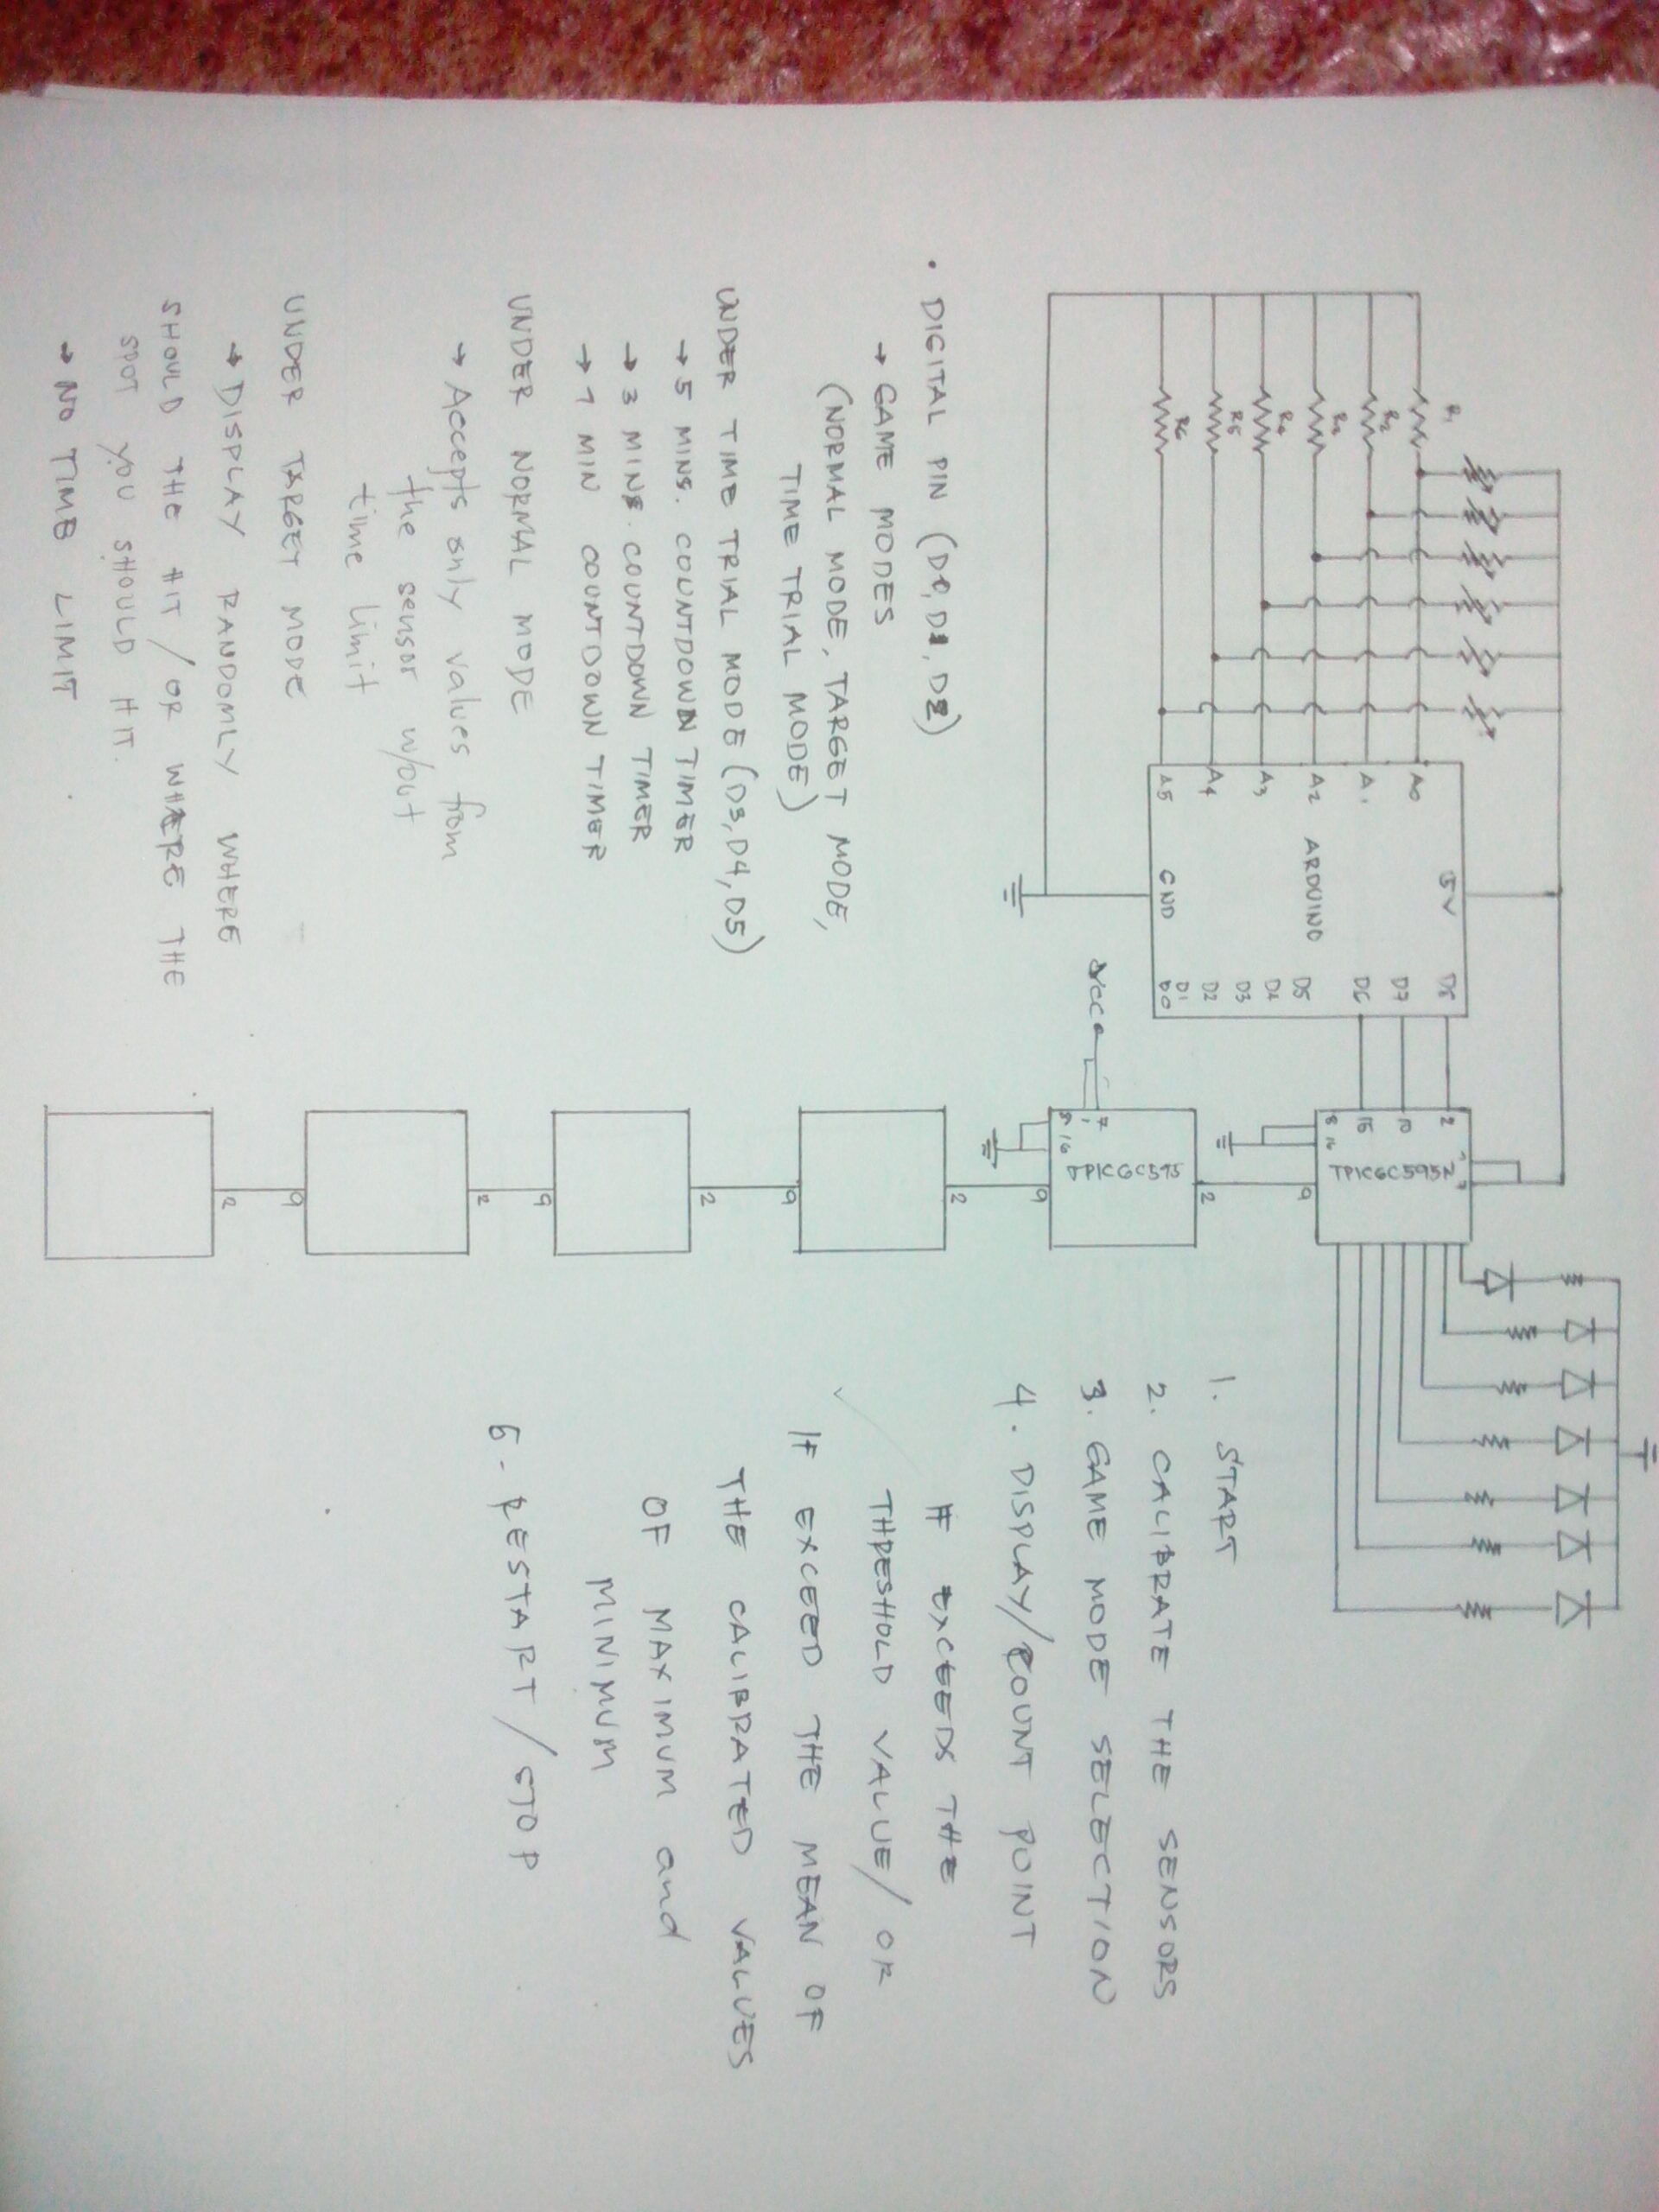 R1
R2
R3
R4
R5
R6
A0
A1
A2
A3
A4
A5
5V
ARDUINO
GND
D8
D7
D6
D5
D4
D3
D2
D1
D0
2
10
15
8
16
TPIC6C595N
9
2
VCC
7
1
8
16
TPIC6C595
9
2
9
2
9
2
9
2
• DIGITAL PIN (D0, D1, D2)
→ GAME MODES
(NORMAL MODE, TARGET MODE,
TIME TRIAL MODE)
UNDER TIME TRIAL MODE (D3, D4, D5)
→ 5 MINS. COUNTDOWN TIMER
→ 3 MINS. COUNTDOWN TIMER
→ 1 MIN COUNTDOWN TIMER
UNDER NORMAL MODE
→ Accepts only values from
the sensor w/out
time limit
UNDER TARGET MODE
→ DISPLAY RANDOMLY WHERE
SHOULD THE HIT / OR WHERE THE
SPOT YOU SHOULD HIT.
→ NO TIME LIMIT
1. START
2. CALIBRATE THE SENSORS
3. GAME MODE SELECTION
4. DISPLAY/COUNT POINT
IF EXCEEDS THE
THRESHOLD VALUE/ OR
IF EXCEED THE MEAN OF
THE CALIBRATED VALUES
OF MAXIMUM and
MINIMUM
6. RESTART / STOP